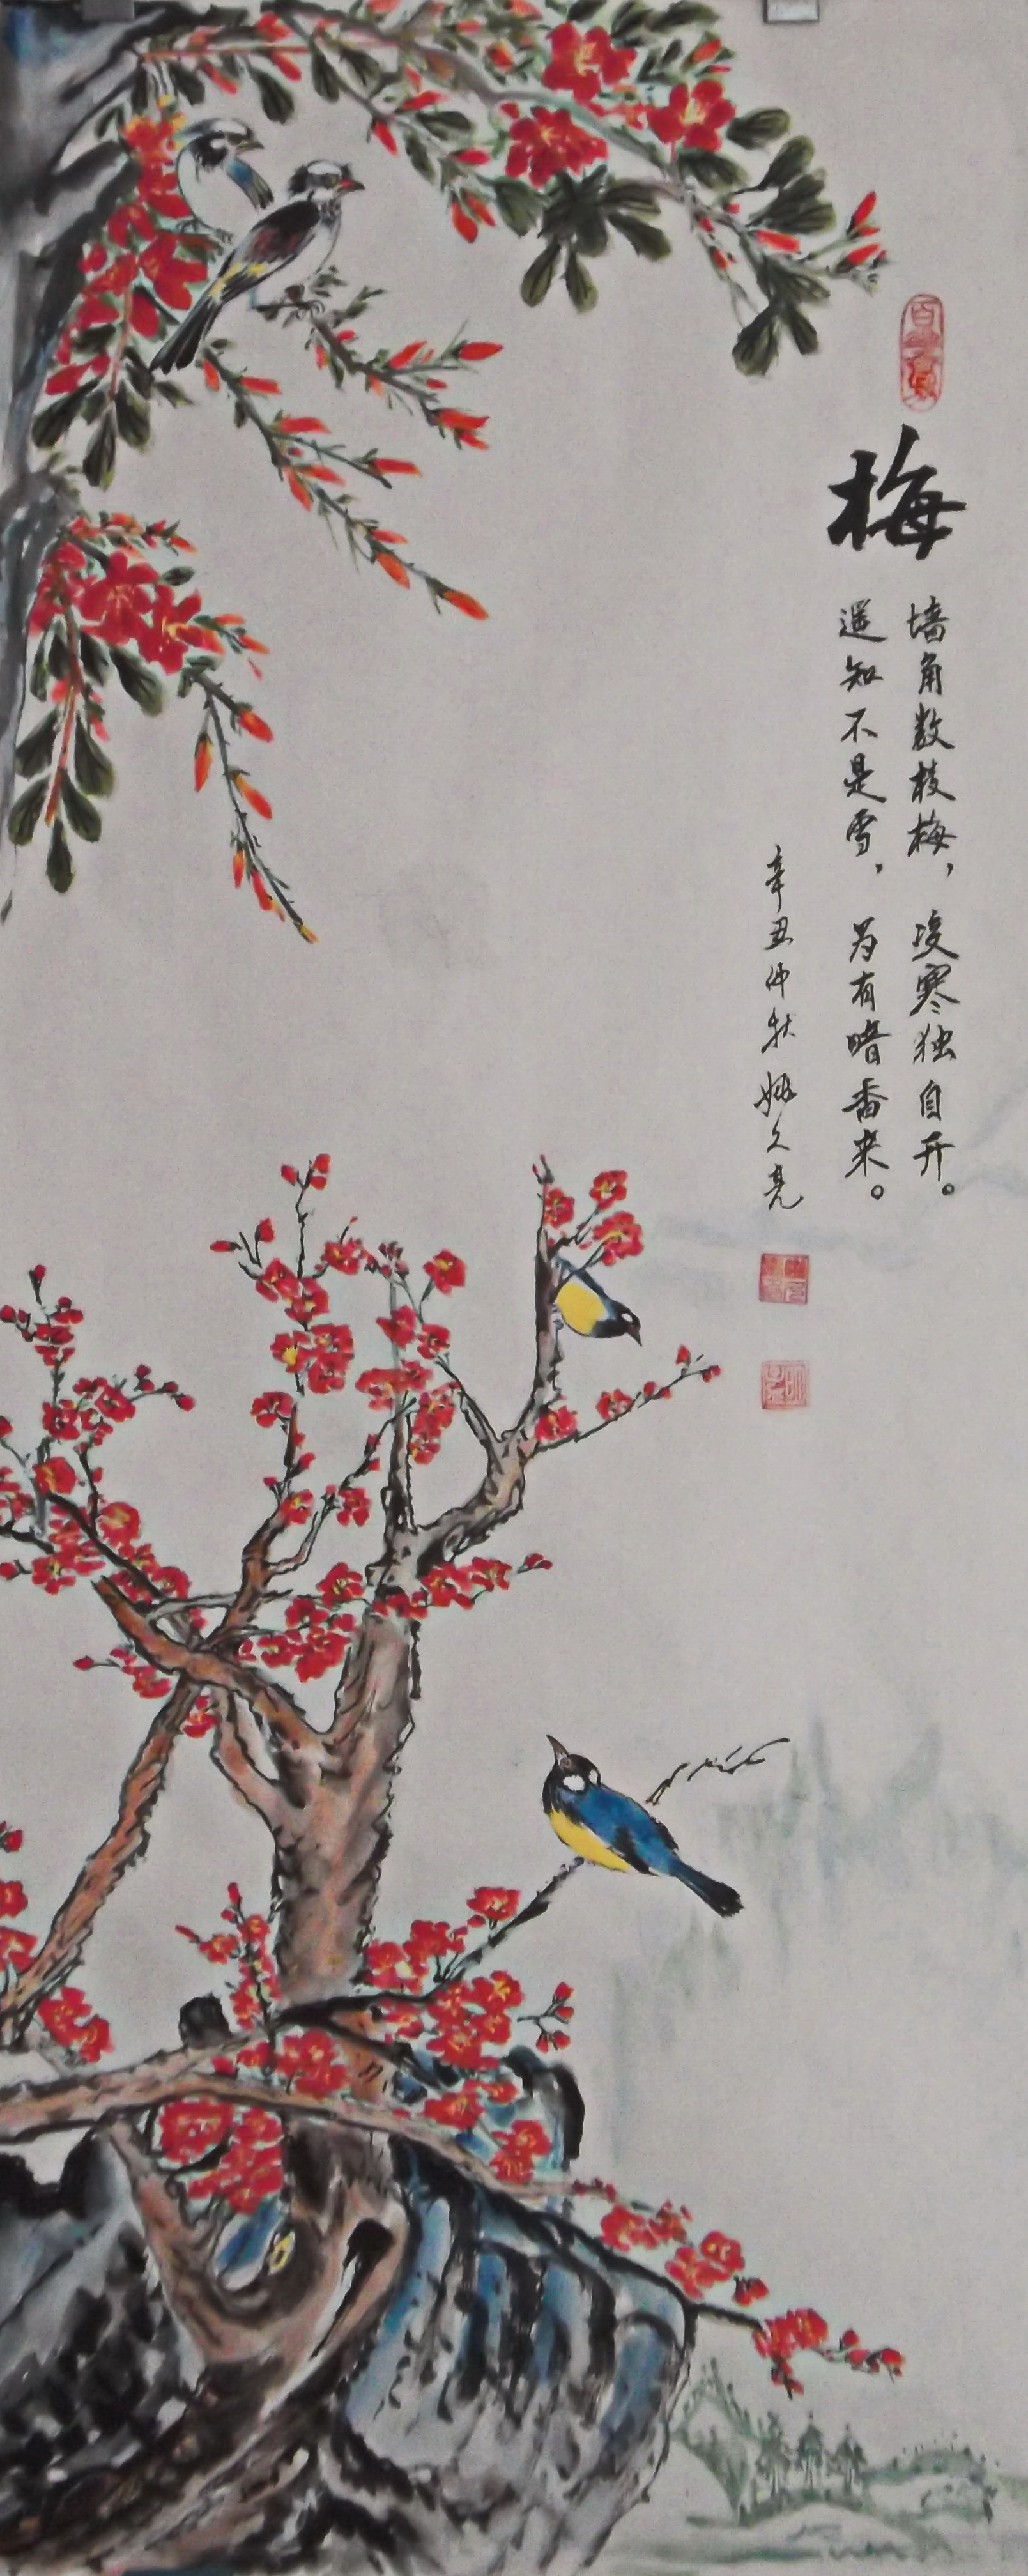 梅
墙角数枝梅，凌寒独自开。
遥知不是雪，为有暗香来。
辛丑仲秋 姚久亮